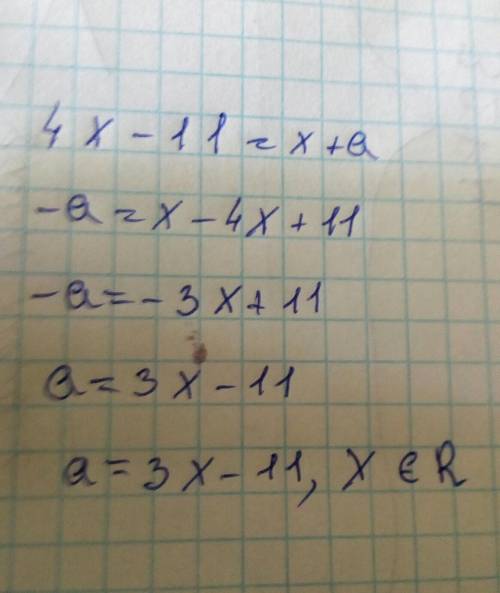 4x - 11 = x + a
-a = x - 4x + 11
-a = -3x + 11
a = 3x - 11
a = 3x - 11, x ∈ R